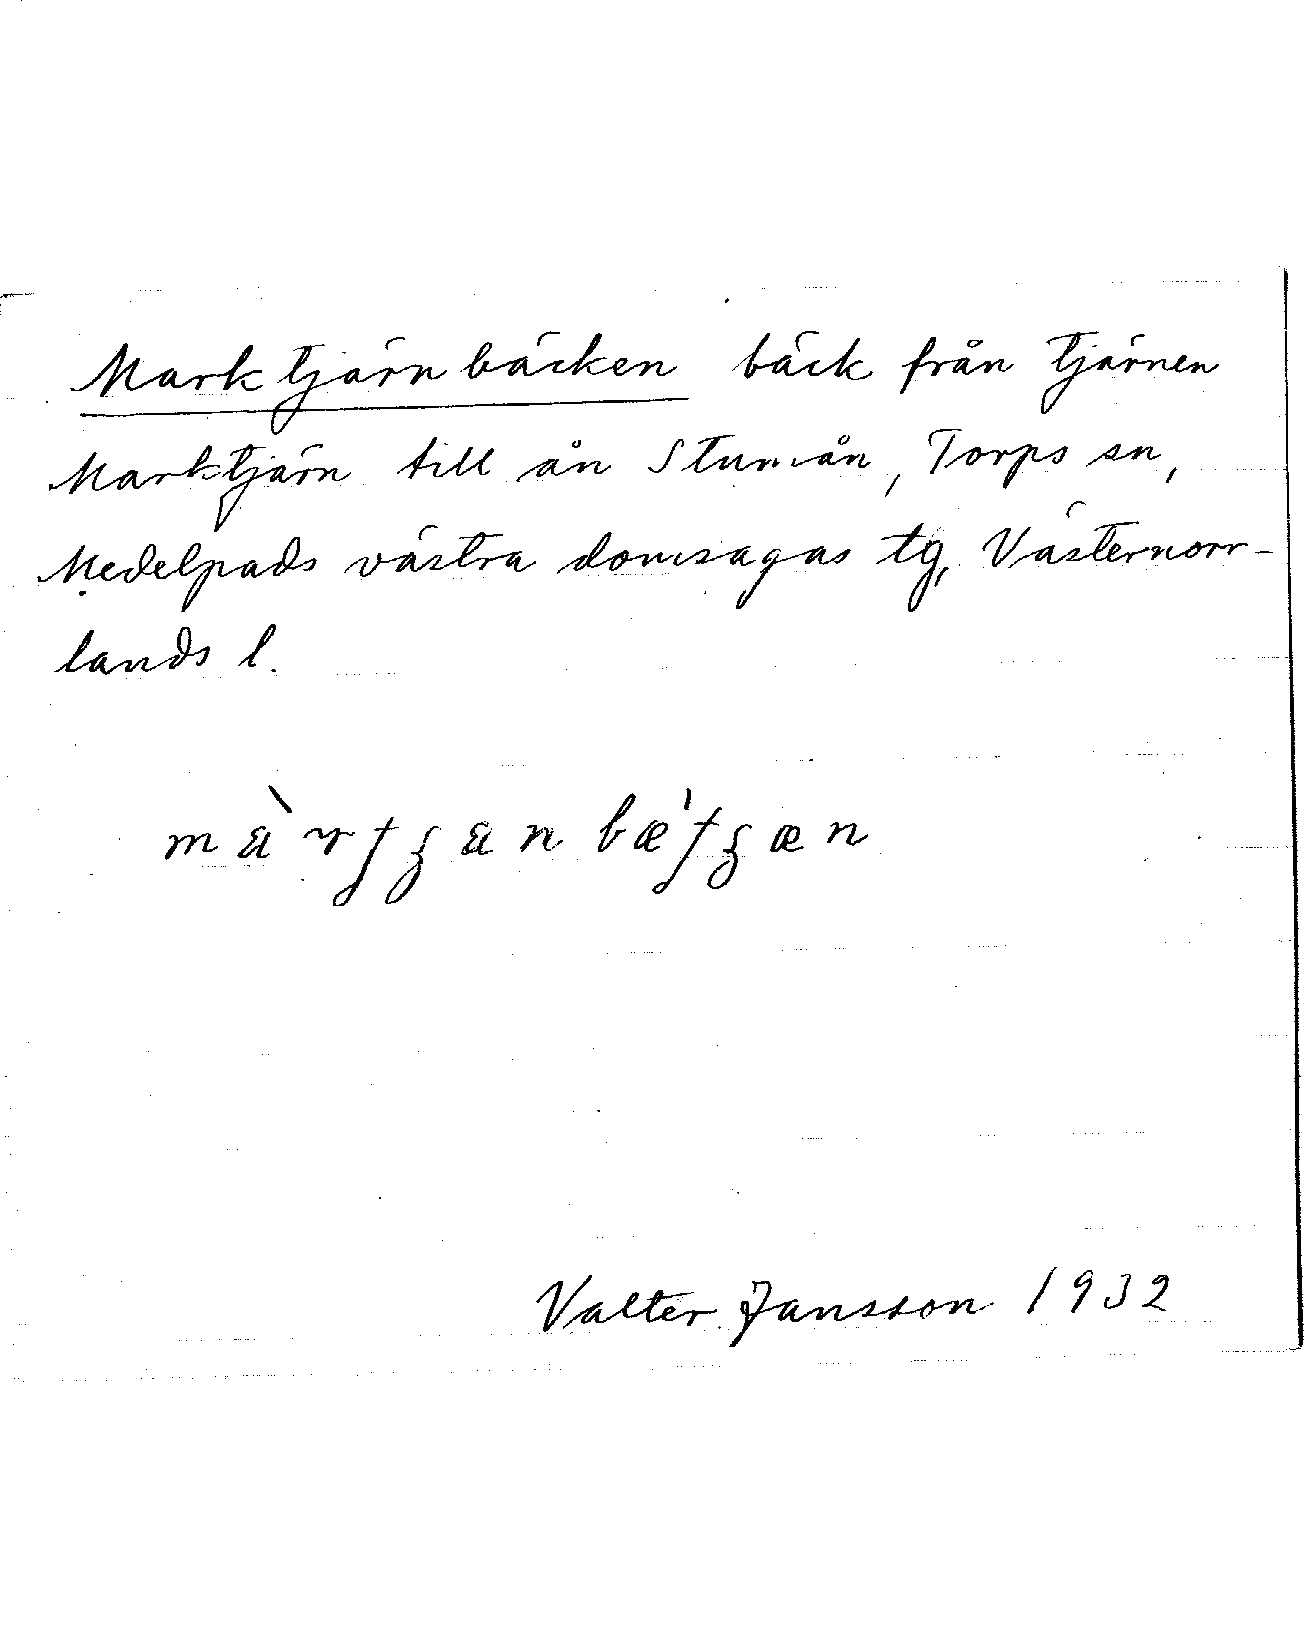 Marktjärnbäcken bäck från tjärnen
Marktjärn till ån Stumån, Torps sn,
Medelpads västra domsagas tg, Västernorr-
lands l.
Valter Jansson 1932